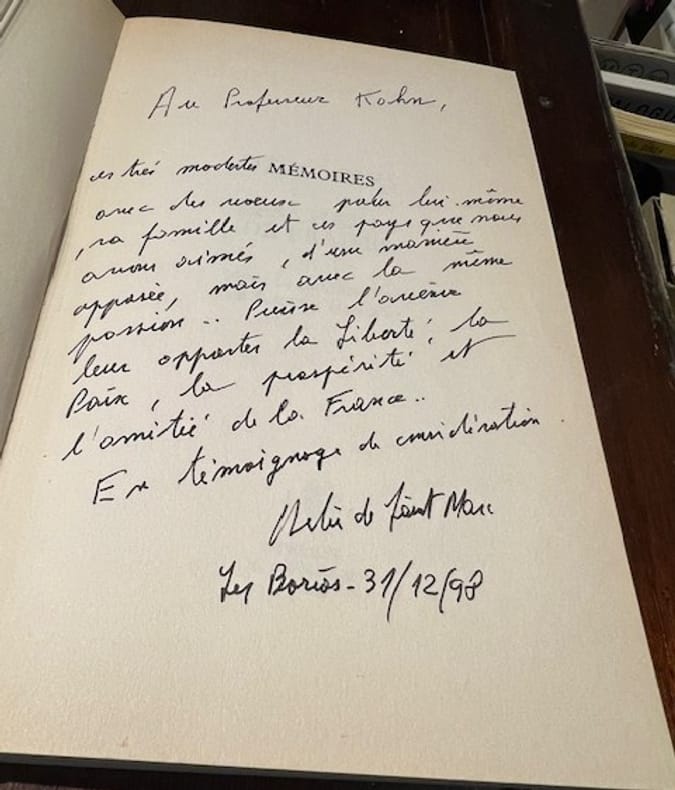 Au Professeur Kohn,
ces très modestes MÉMOIRES
avec des voeux pour lui-même
, sa famille et ces pays que nous
avons aimés, d'une manière
opposée, mais avec la même
passion.. Puisse l'avenir
leur apporter la Liberté, la
Paix, la prospérité et
l'amitié de la France..
En témoignage de considération.
Hélie de Saint Marc
Les Borios - 31/12/98